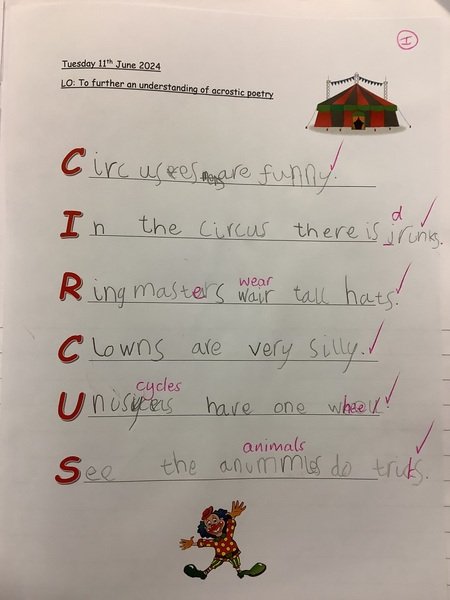 I
Tuesday 11th June 2024
LO: To further an understanding of acrostic poetry
Circusees are funny.
d
In the circus there is jrinks.
wear
Ringmasters wair tall hats.
Clowns are very silly.
cycles
have one
animals
See the anummls do tricks.